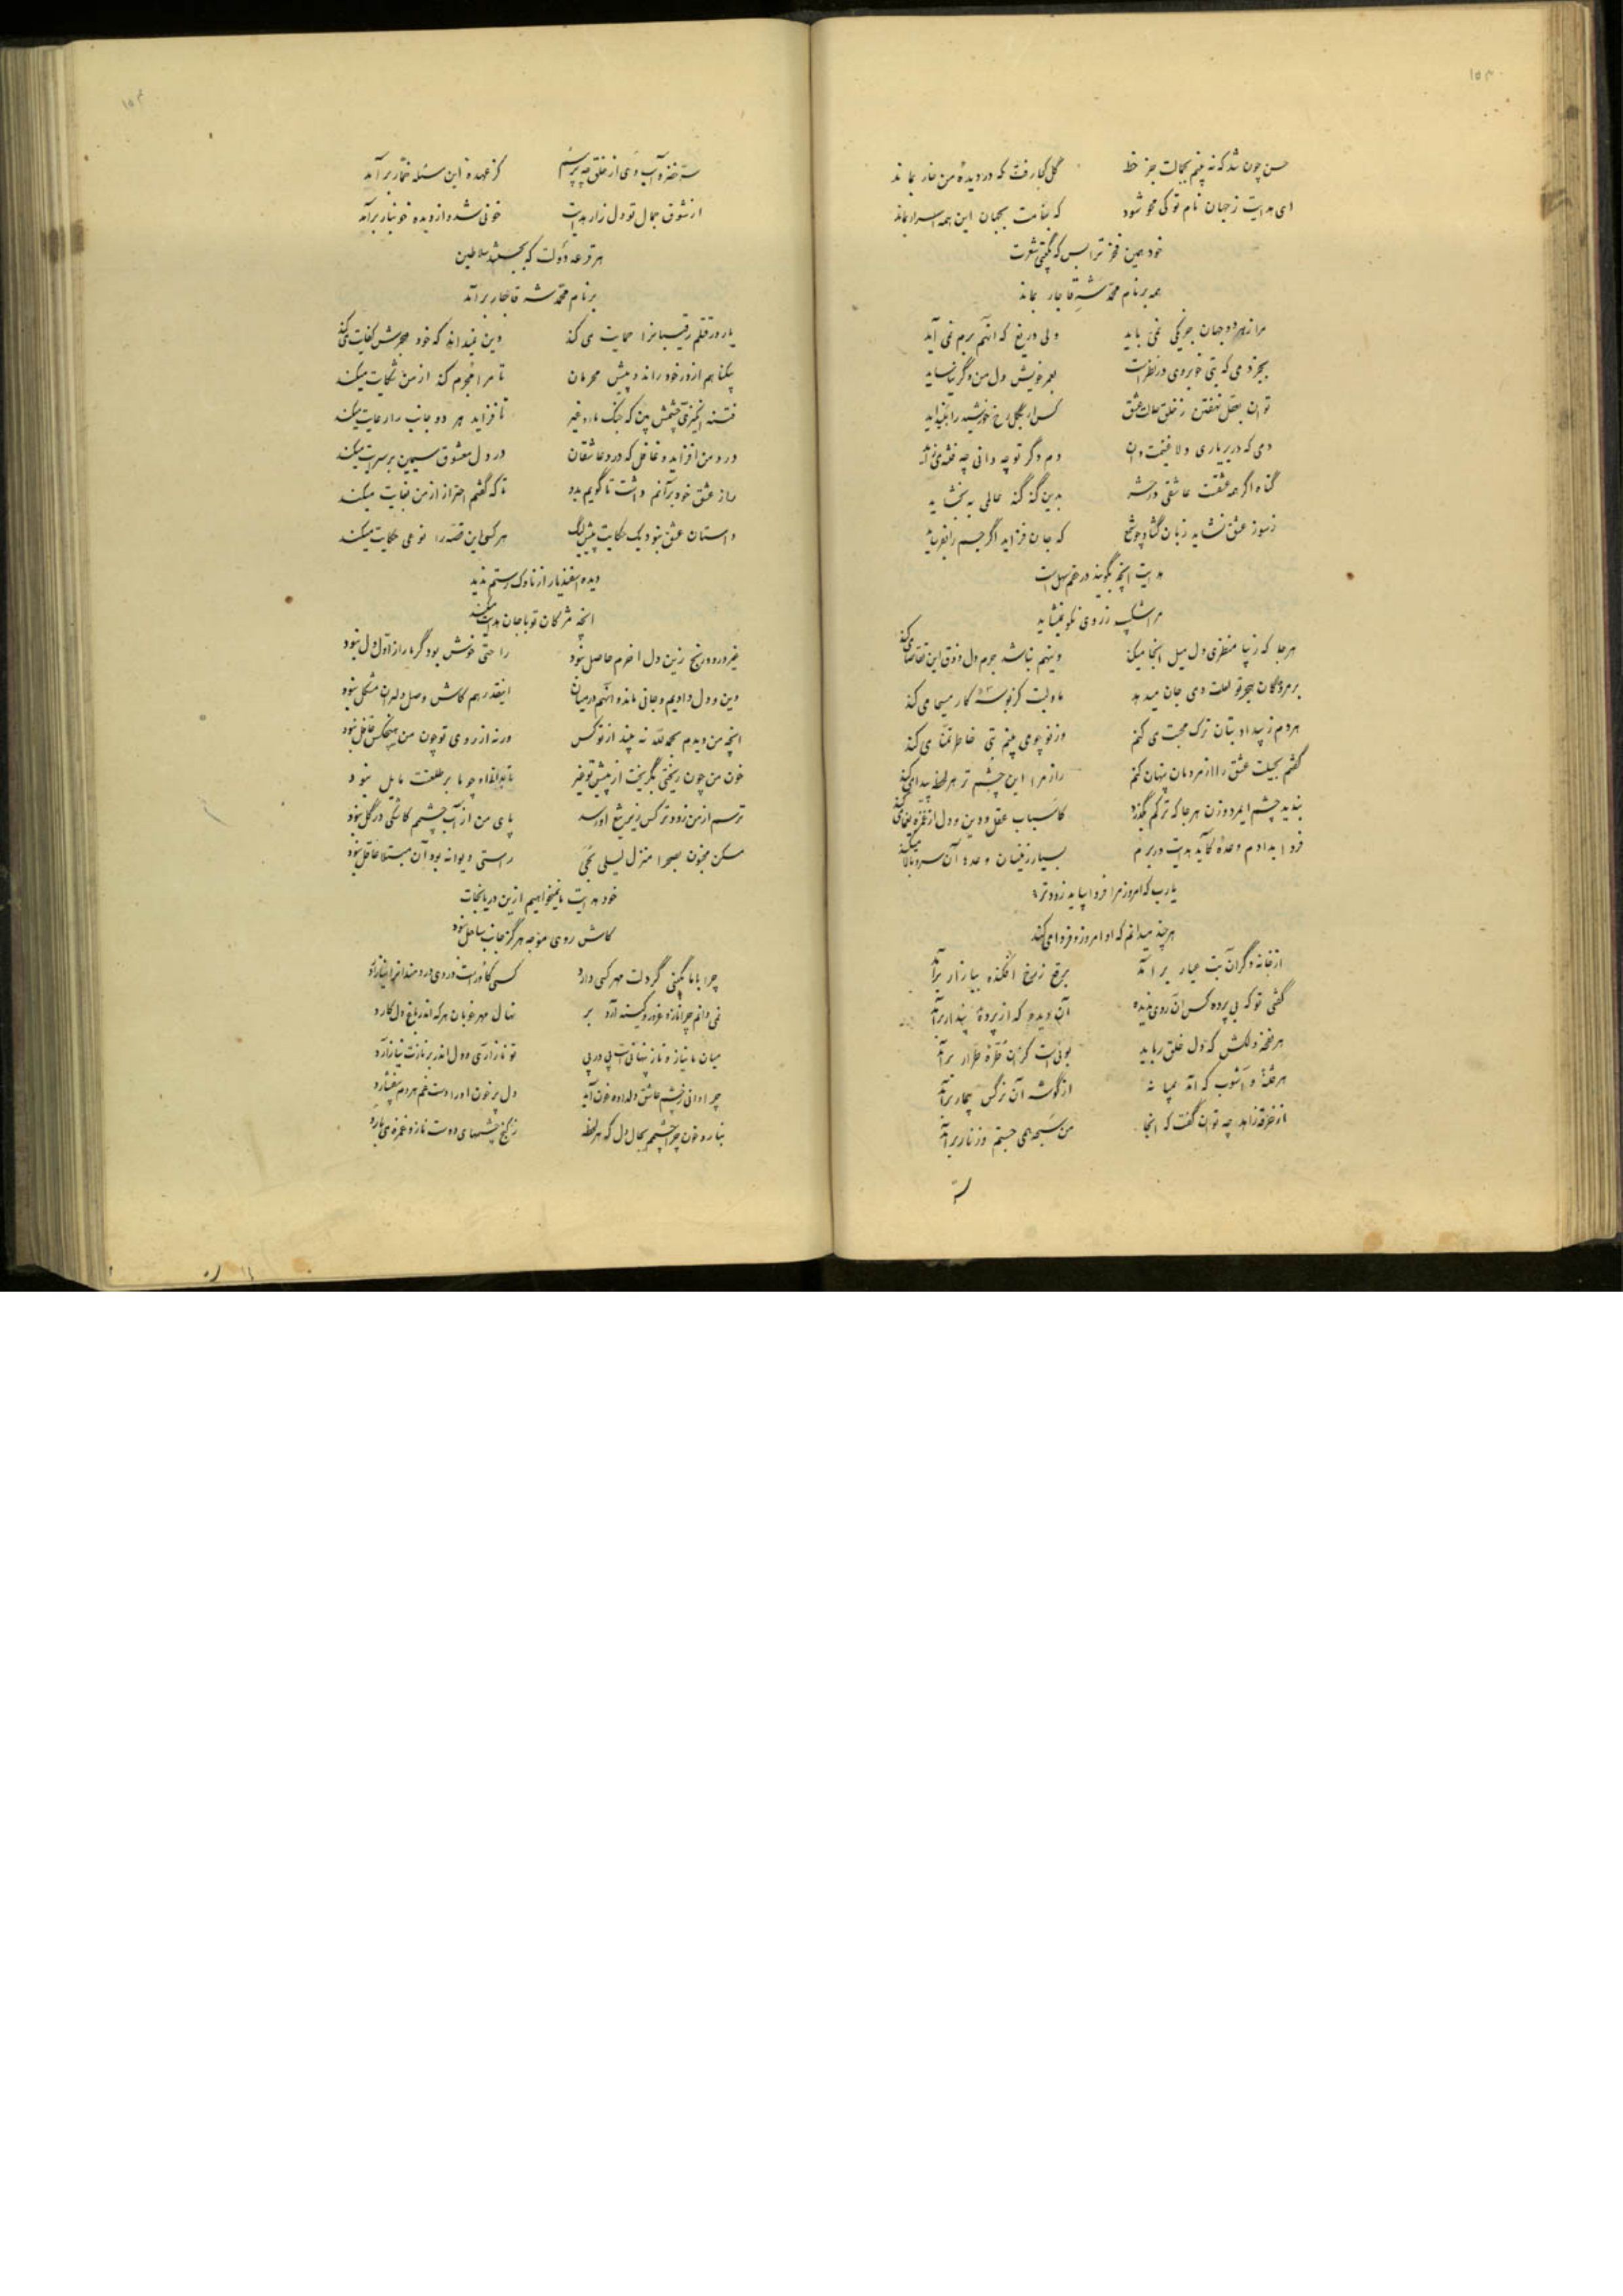 حسن چون شد که نه بینم بجمالت جز خط گل کجا رفت که در دیده من خار بماند
ای هدایت ز جهان نام تو کی محو شود که بنامت بجهان این همه اسرار بماند
خود همین فخر ترا بس که بگیتی شعرت
همه بر نام محمد شه قاجار بماند
مرا ز هر دو جهان جز یکی نمی باید ولی دریغ که آنهم برم نمی آید
بجز دمی که بتی خوبروی در نظر است بعمر خویش دل من دگر نیاساید
توان بعقل نهفتن ز خلق حالت عشق کس ار بگل رخ خورشید را بینداید
دمی که در بر یاری دلا غنیمت دان دم دگر تو چه دانی چه فتنه می زاید
گناه اگر همه عشقست عاشقی در حشر بدین گنه گنه عالمی به بخشاید
ز سوز عشق نشاید زبان گشاد چو شمع که جان فزاید اگر جسم را بفرساید
هدایت آنچه بگویند در غم سهل است
مرا شکیب ز روی نکو نمیشاید
هر جا که زیبا منظری دل میل آنجا میکند وینهم نباشد جرم دل ذوق این تقاضا می کند
بر مردگان هجر تو لعلت دمی جان میدهد ما و لبت کز بوسه کار مسیحا می کند
هر دم ز بیداد بتان ترک محبت می کنم وز نو چو می بینم بتی خاطر تمنا می کند
گفتم بحیلت عشق را از مردمان پنهان کنم راز مرا این چشم تر هر لحظه پیدا می کند
بندید چشم ای مرد و زن هر جا که ترکم بگذرد کاسباب عقل و دین و دل از غمزه یغما می کند
فردا بدادم وعده کاید هدایت در برم بسیار زینسان وعده آن سرو بالا میکند
یارب که امروز مرا فردا بیاید زودتر
هر چند میدانم که او امروز و فردا می کند
از خانه دگر آن بت عیار برآمد برقع ز رخ افکنده ببازار برآمد
گفتی تو که بی پرده کس آن روی ندیده آن دید که از پرده پندار برآمد
هر نفحه دلکش که دل خلق رباید بوئی است کز آن طره طرار برآمد
هر فتنه و آشوب که آمد بمیانه از گوشه آن نرگس بیمار برآمد
از خرقه زاهد چه توان گفت که آنجا من سبحه همی جستم و زنار برآمد
سرّ خضر و آب وی از خلق چه پرسم کز عهده این مسئله خمار برآمد
از شوق جمال تو دل زار هدایت خونی شد و از دیده خونبار برآمد
هر قرعه دولت که بجستند سلاطین
بر نام محمد شه قاجار برآمد
یار در قتلم رقیبانرا حمایت می کند وین نمیداند که خود هجرش کفایت می کند
بیگناهم از در خود راند و پیش محرمان تا مرا مجرم کند از من شکایت میکند
فتنه انگیزی چشمش بین که جنگ ما و غیر تا فزاید هر دو جانب را رعایت میکند
درد من افزاید و غافل که درد عاشقان در دل معشوق سیمین بر سرایت میکند
راز عشق خود بر آنم داشت تا گویم بدو تا که گفتم احتراز از من بغایت میکند
داستان عشق نبود یک حکایت بیش لیک هر کسی این قصه را نوعی حکایت میکند
دیده اسفندیار از ناوک رستم ندید
آنچه مژگان تو با جان هدایت میکند
غیر درد و رنج زین دل آخرم حاصل نبود راحتی خوش بود گر ما را ز اول دل نبود
دین و دل دادیم و جانی ماند و آنهم در میان اینقدر هم کاش وصل دلبران مشکل نبود
آنچه من دیدم بحمدالله نه بیند از تو کس ورنه از روی تو چون من هیچکس غافل نبود
خون من چون ریختی بگریخت از پیش تو غیر تا بداند او چو ما بر طلعتت مایل نبود
ترسم از من زودتر کس زیر تیغ او رسد پای من از آب چشمم کاشکی در گل نبود
مسکن مجنون بصحرا منزل لیلی بحی راستی دیوانه بود آن مبتلا عاقل نبود
خود هدایت ما نمیخواهیم ازین دریا نجات
کاش روی موجه هرگز جانب ساحل نبود
چرا با ما بگینی گر دلت مهر کسی دارد
نمی دانم چرا ناز و غرور و کینه آرد بر نهال مهر خوبان هر که اندر باغ دل کارد
میان ما نیاز و ناز پنهانی است پی در پی تو ناز آری و دل اندر بر نازت نیاز آرد
چرا دانی ز چشم عاشق دلداده خون آید دل پر خون او را دست غم هر دم بیفشارد
نبارد خون چرا چشمم بحال دل که هر لحظه ز کنج چشمهای دوست ناز و غمزه می بارد